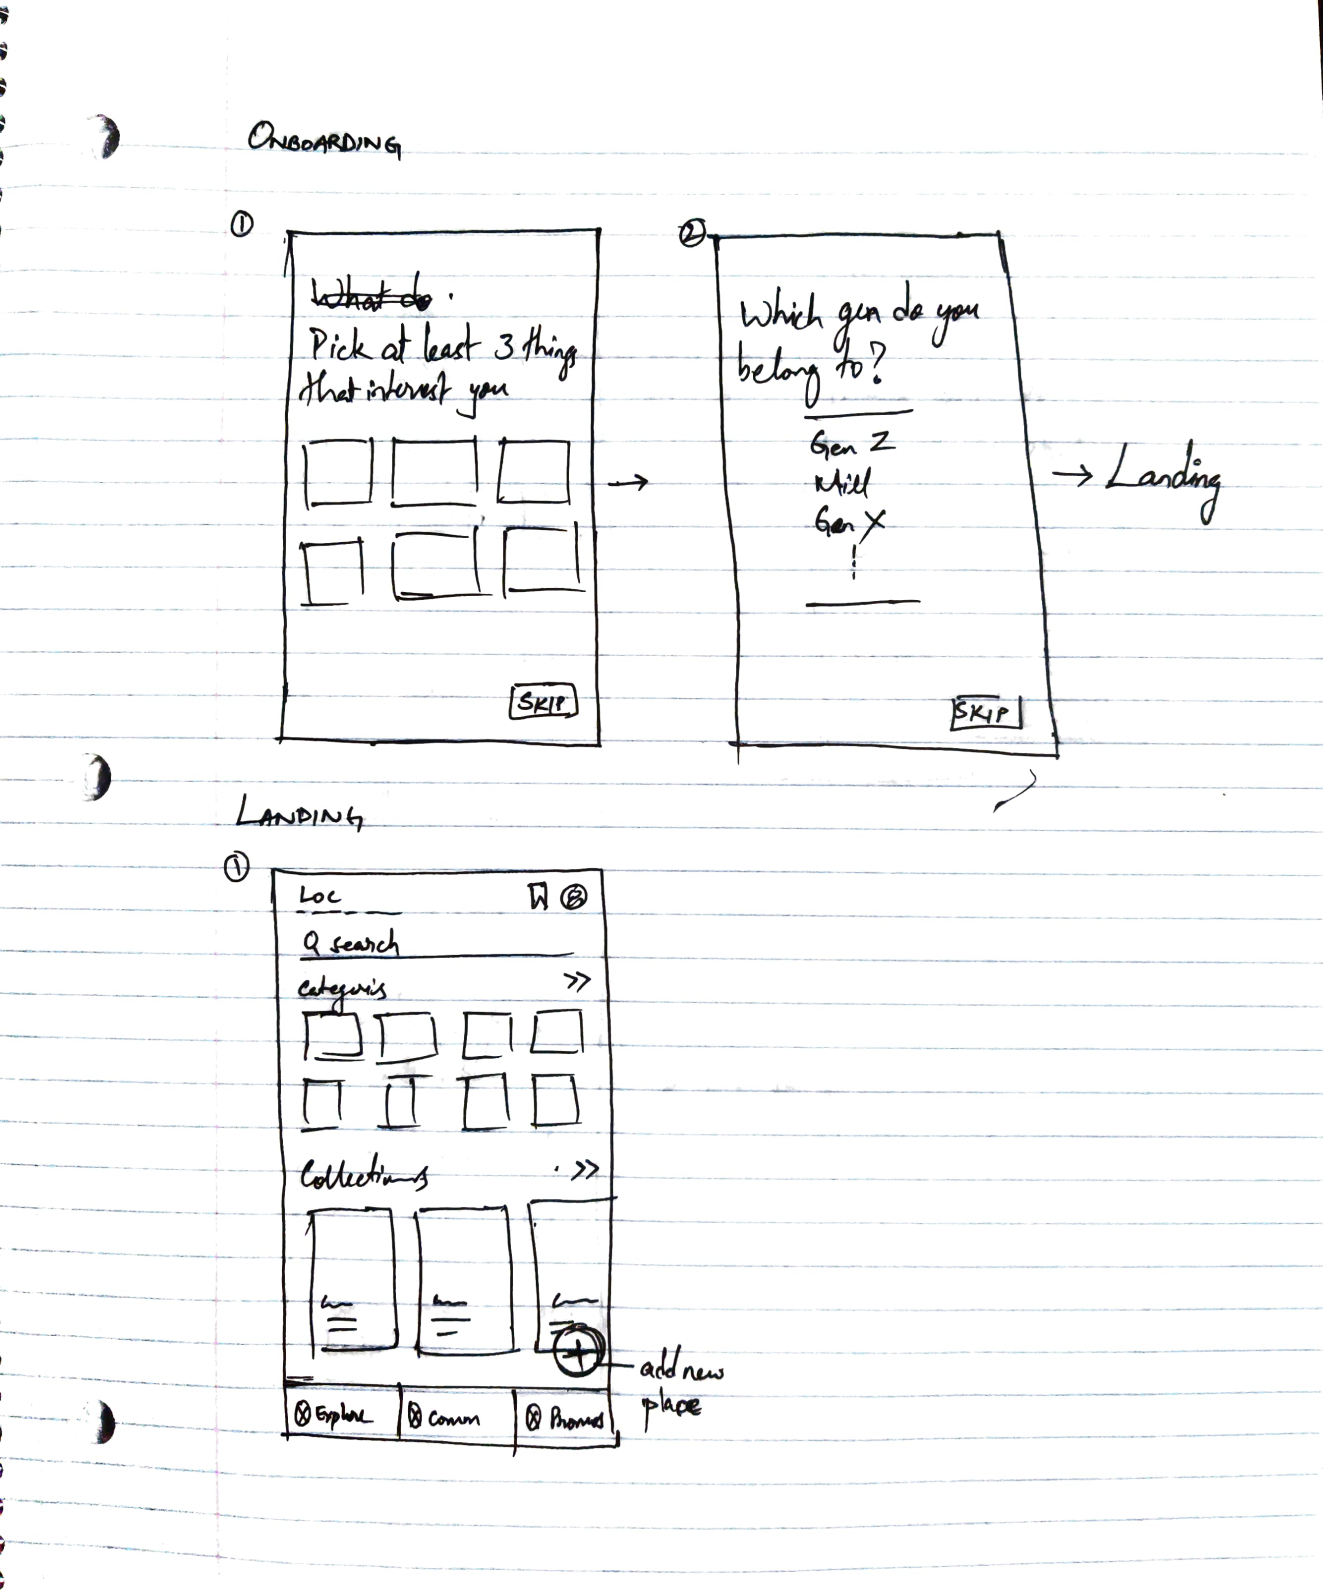 ONBOARDING
①
What do.
Pick at least 3 things
that interest you
SKIP
②
Which gen do you
belong to?
Gen Z
Mill
Gen X
SKIP
→ Landing
LANDING
①
Loc
search
Categoris
>>
Collections
>>
add new
place
Explore
Comm
Promos